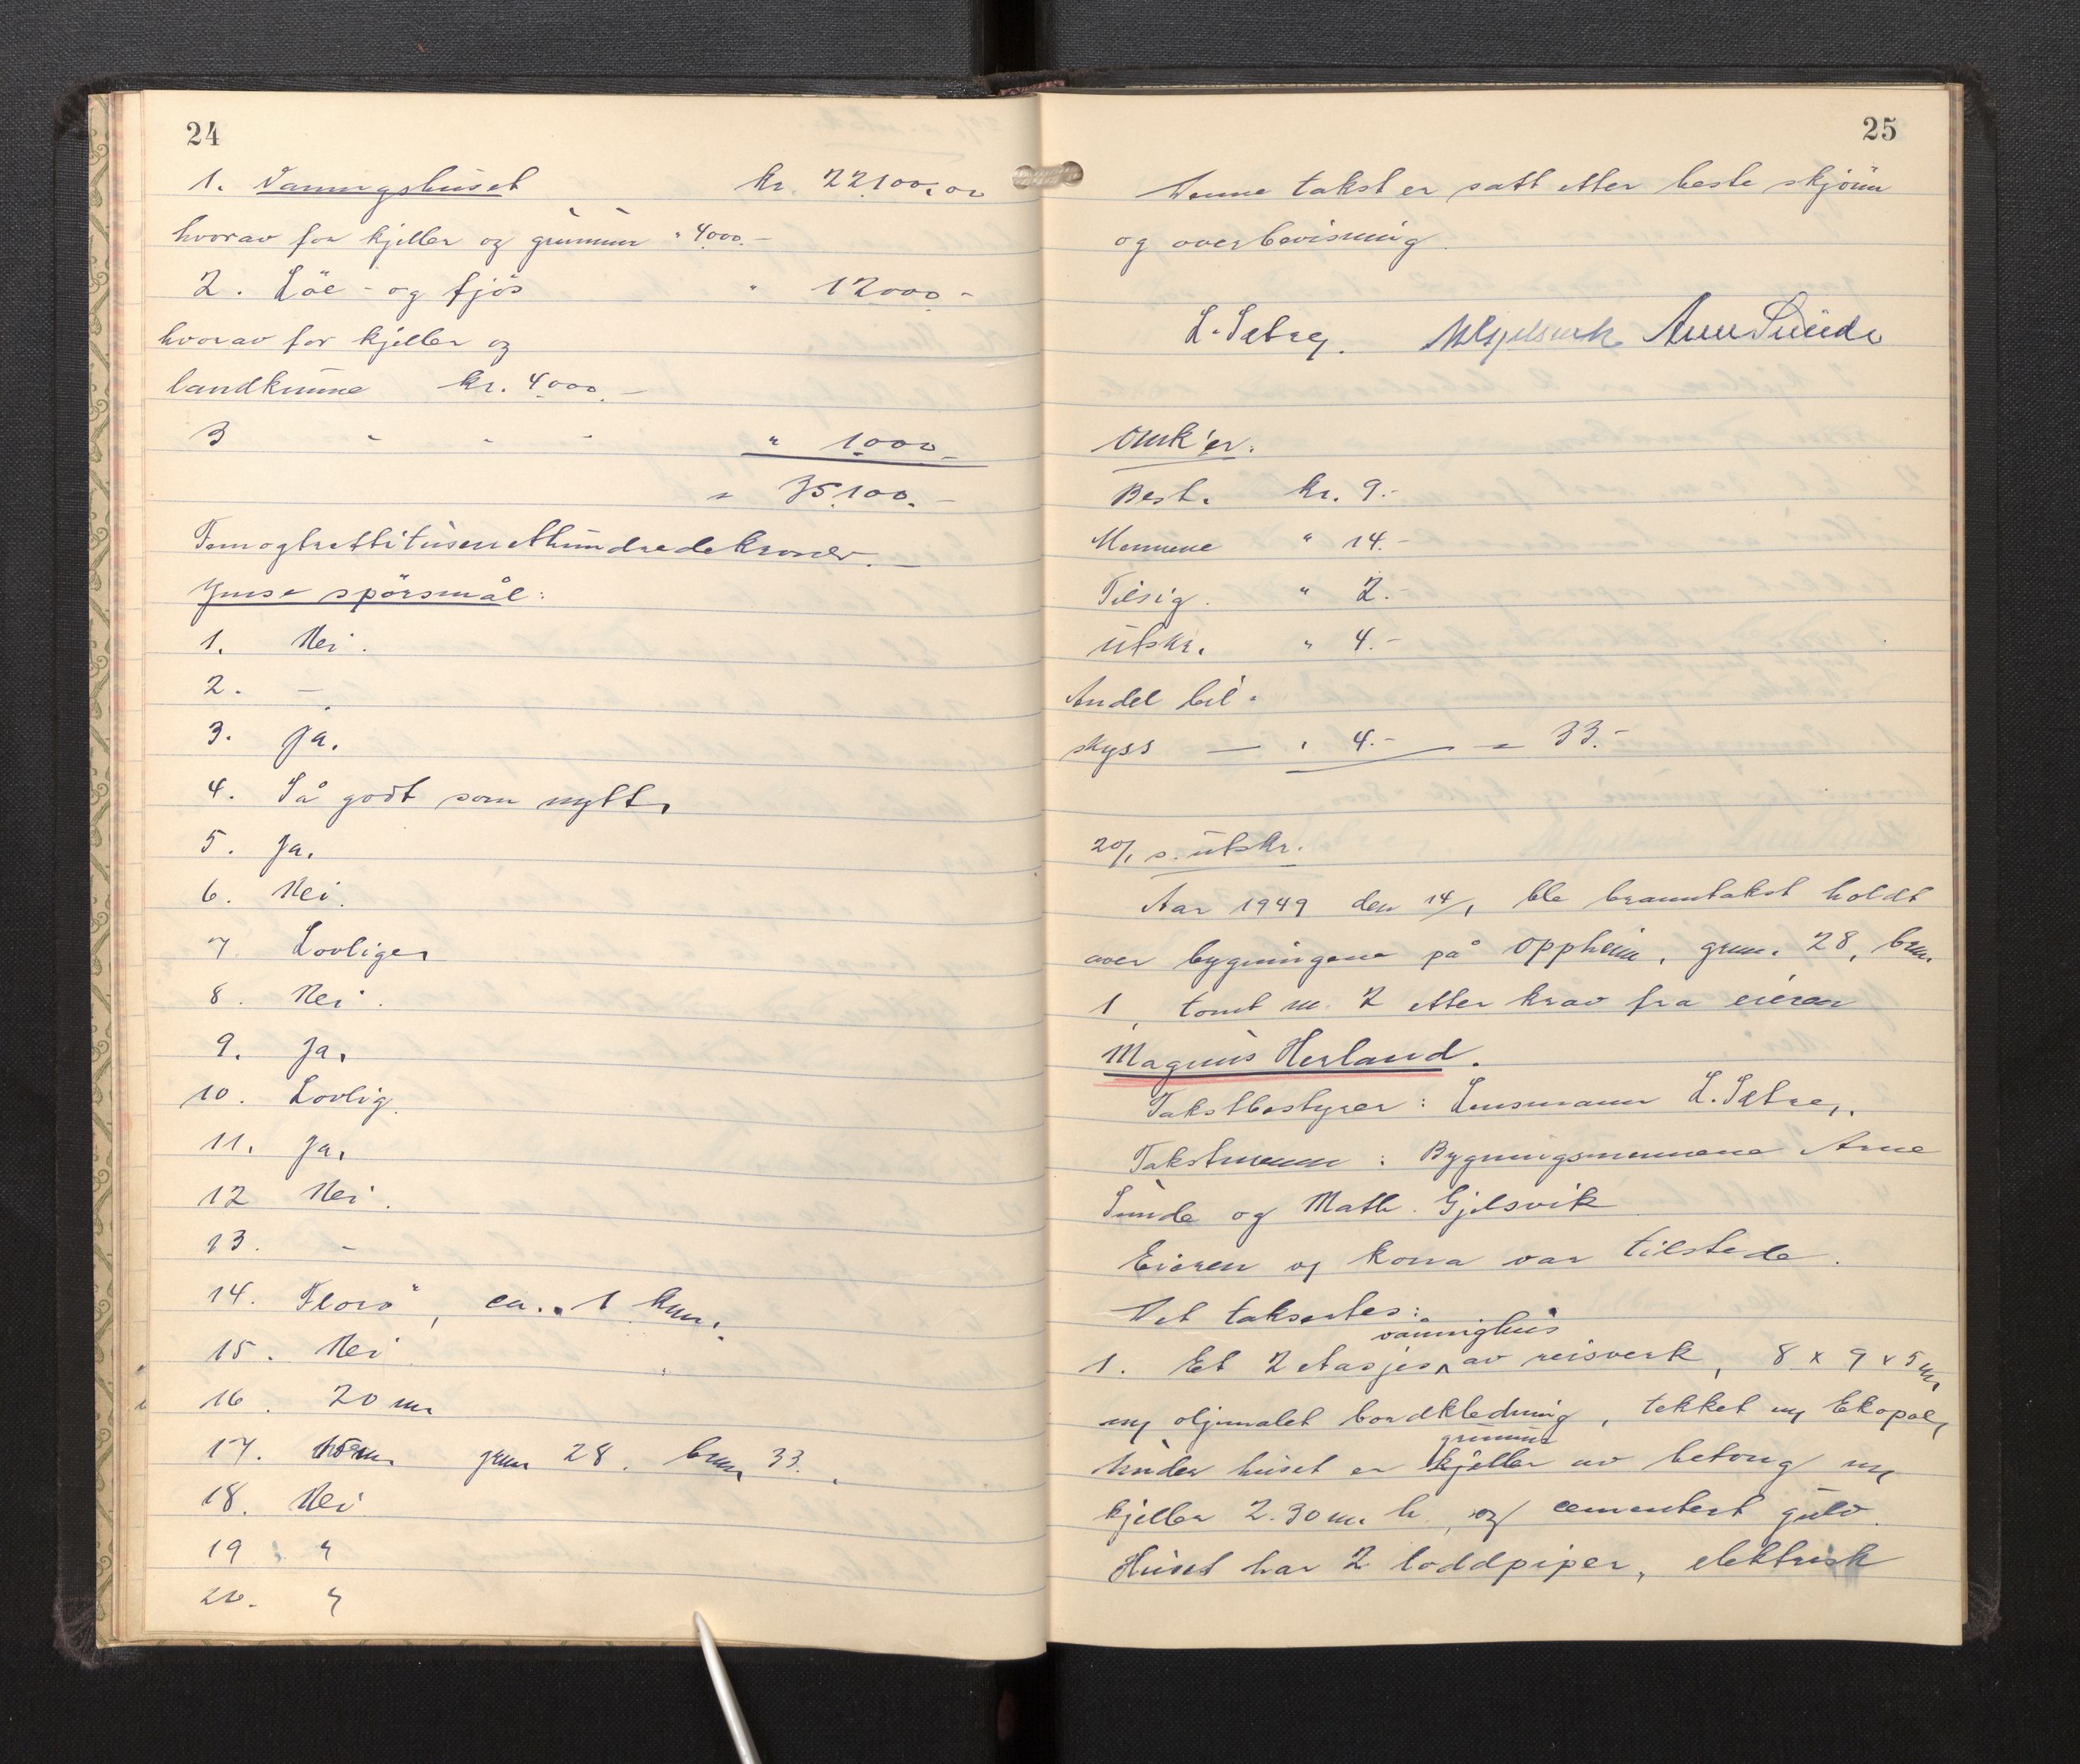 24
1. Vaningshuset kr. 22100,00
hvorav for kjeller og grunnmur " 4000.-
2. Löe- og fjös " 12000-
hvorav for kjeller og
landkumme kr. 4000.-
3 - - - " 1000.-
" 35100.-
Femogtrettitusenetthundredekroner.-
Ymse spörsmål:
1. Nei.
2. -
3. Ja.
4. Så godt som nytt.
5. Ja.
6. Nei.
7 Lovlige.
8. Nei.
9. Ja.
10. Lovlig.
11. Ja.
12 Nei.
13. -
14. Florö, ca. 1 km.
15. Nei
16. 20 m
17. gnr 28. bnr 33.
18. Nei
19 "
20. "
25
Denne takst er satt etter beste skjönn
og overbevisning.
L. Sætre. M Gjelsvik Arne Sunde
Omk'er.
Best. kr. 9.-
Mennene " 14.-
Tilsig. " 2.-
Utskr. " 4.-
Andel bil-
skyss — " 4.- — = 33.-
20/1 s. utskr.
Aar 1949 den 14/1 ble branntakst holdt
over bygningene på Oppheim, gnr. 28, bnr.
1, tomt nr. 2 etter krav fra eieren
Magnus Herland.
Takstbestyrer: Lensmann L. Sætre.
Takstmenn: Bygningsmennene Arne
Sunde og Math. Gjelsvik
Eieren og kona var tilstede.
Det taksertes:
vånninghus
1. Et 2 etasjes av reisverk, 8 x 9 x 5 m
m/ oljemalet bordkledning, tekket m/ Ekopal,
grunnmur
Under huset er kjeller av betong m/
kjeller 2.30 m. h., og cementert gulv.
Huset har 2 loddpiper, elektrisk